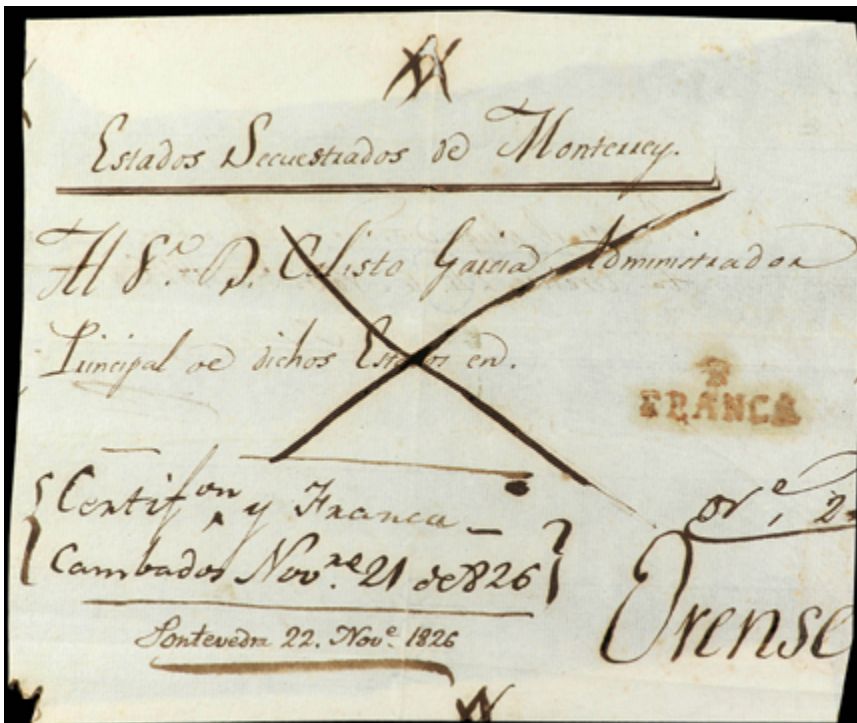 Estados Secuestrados de Monterrey.
Al Sr. D. Calisto Garcia Administrador
Principal de dichos Estados en.
FRANCA
Certifon y Franca
Cambados Novre. 21 de 826
Pontevedra 22. Nove. 1826
Orense